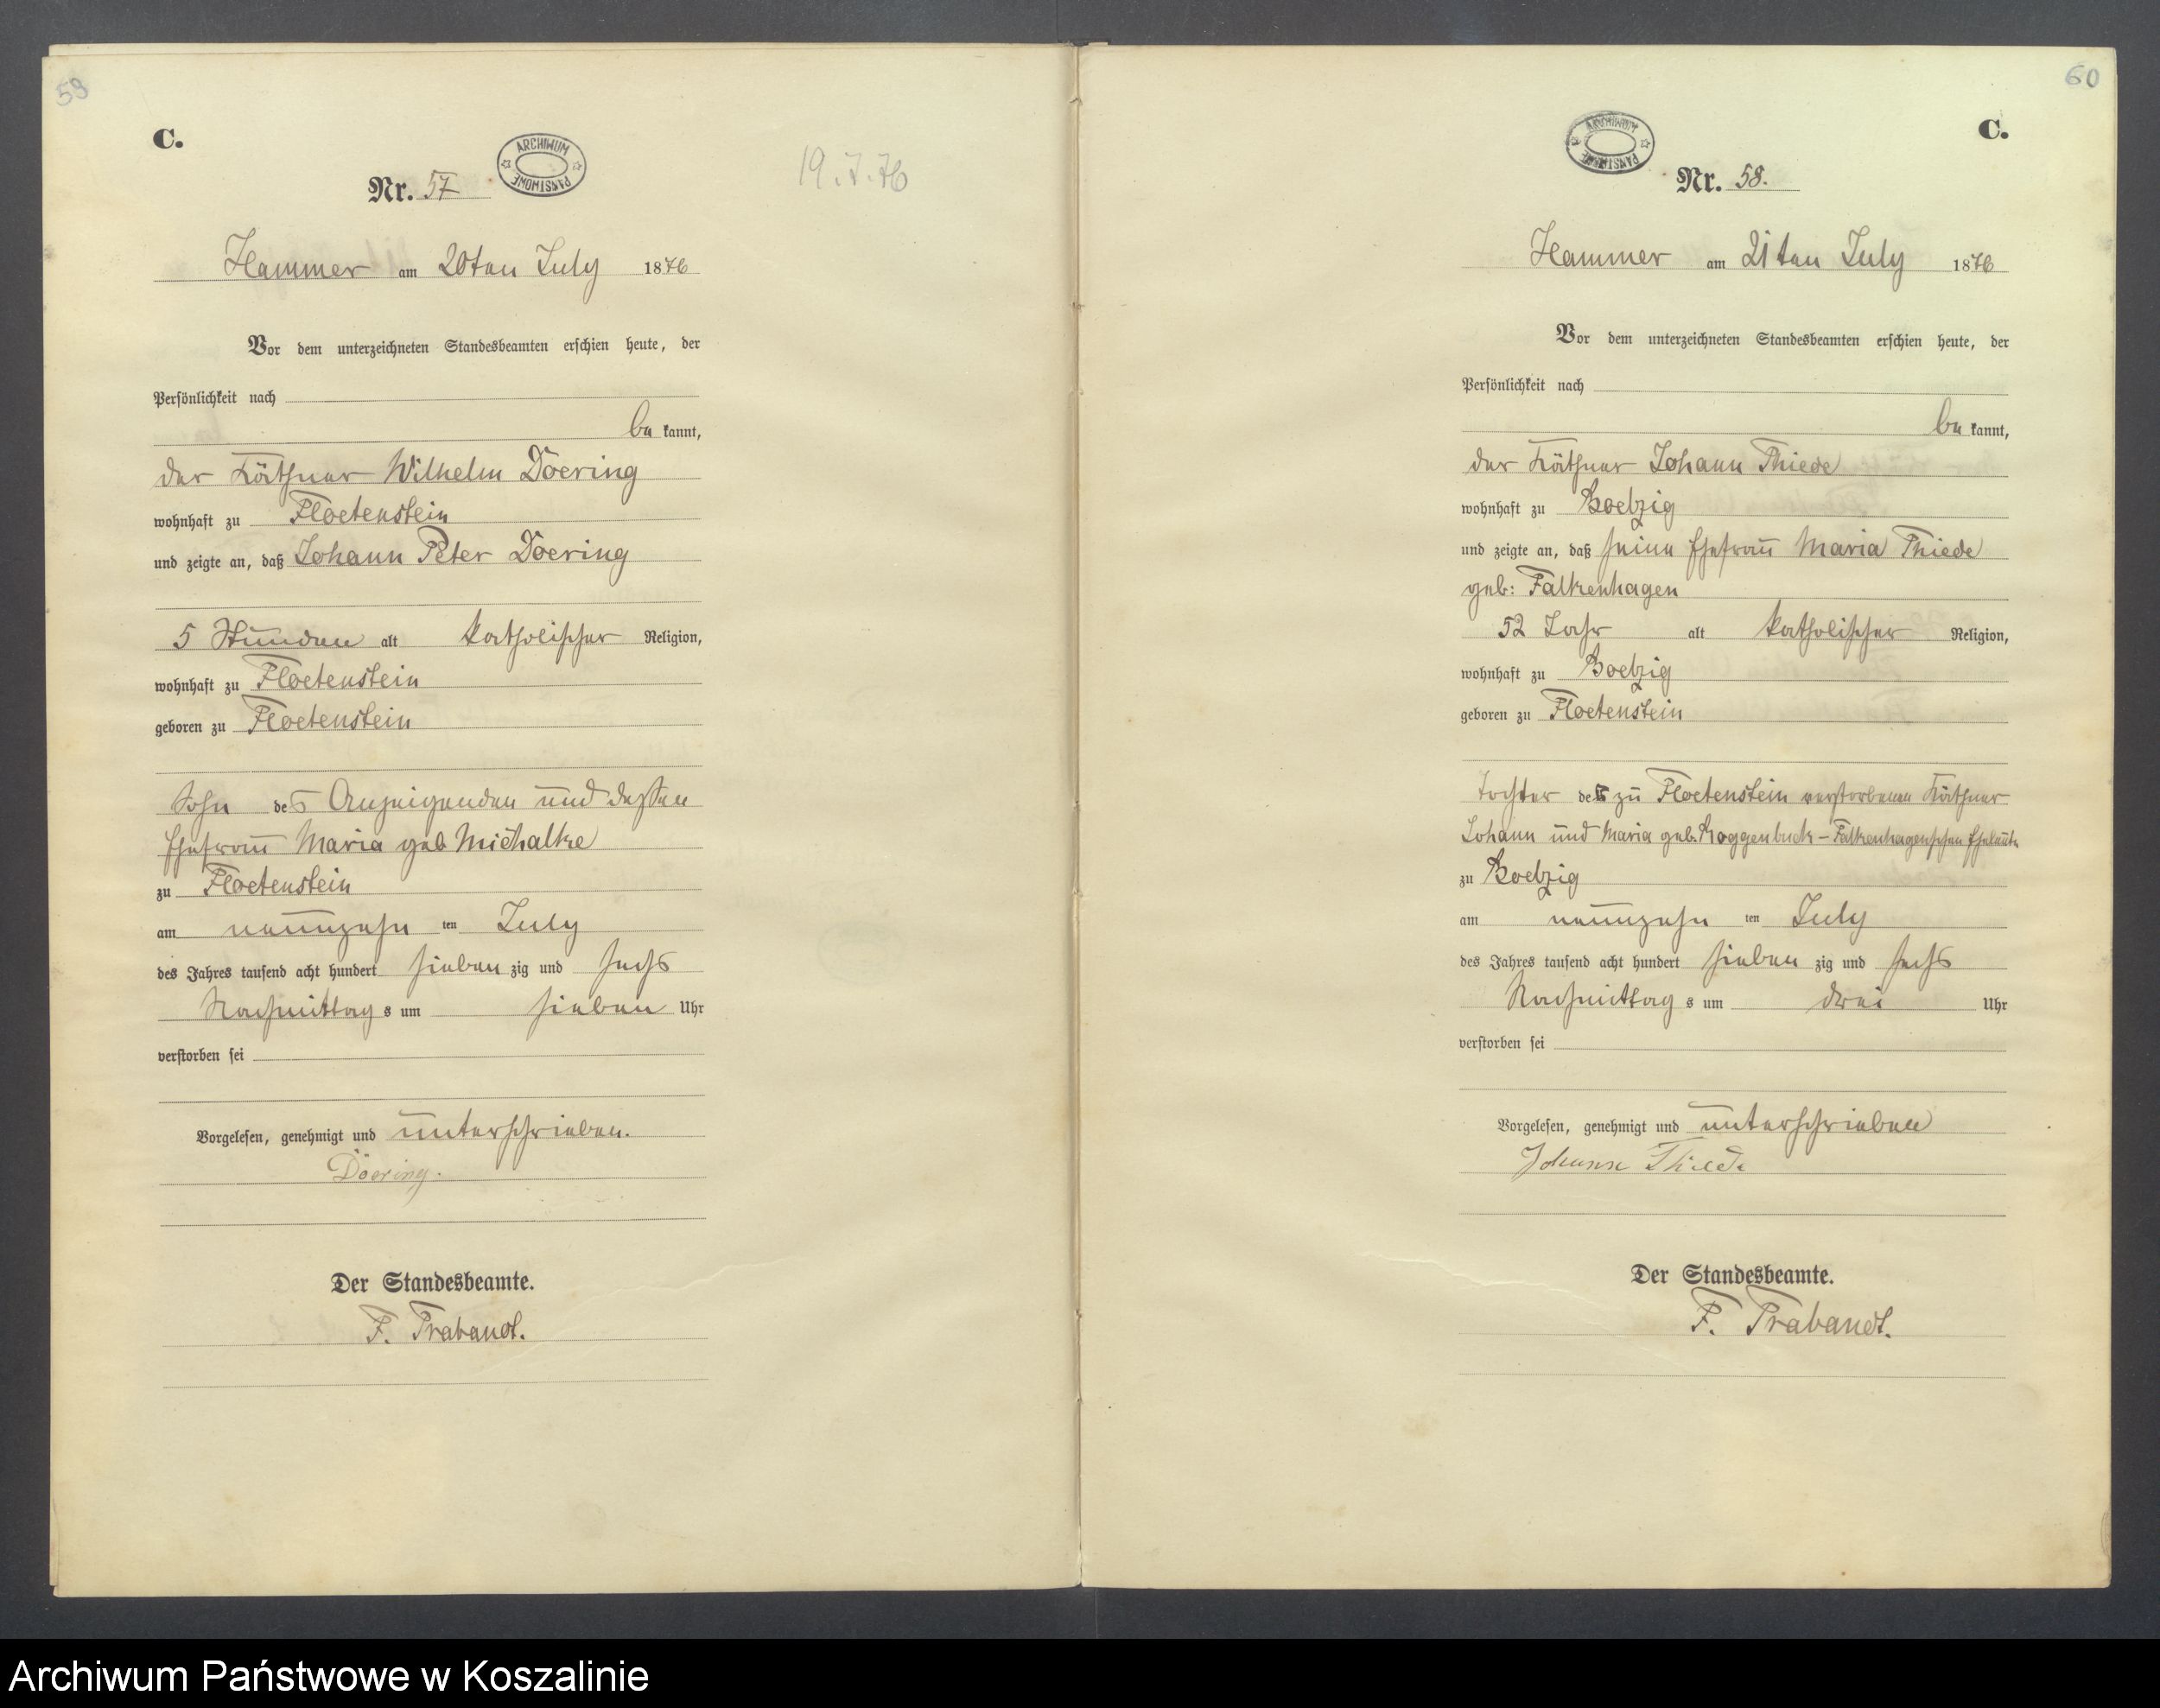 59
C.
ARCHIWUM PAŃSTWOWE
Nr. 57
19.7.76
Hammer am 20ten July 1876
Vor dem unterzeichneten Standesbeamten erschien heute, der
Persönlichkeit nach
be kannt,
der Käthner Wilhelm Doering
wohnhaft zu Floetenstein
und zeigte an, daß Johann Peter Doering
5 Stunden alt katholischer Religion,
wohnhaft zu Floetenstein
geboren zu Floetenstein
Sohn des Anzeigenden und dessen
Ehefrau Maria geb Michalke
zu Floetenstein
am neunzehn ten July
des Jahres tausend acht hundert sieben zig und sechs
Nachmittag s um sieben Uhr
verstorben sei
Vorgelesen, genehmigt und unterschrieben.
Döering.
Der Standesbeamte.
F. Trabandt.
60
C.
ARCHIWUM PAŃSTWOWE
Nr. 58.
Hammer am 21ten July 1876
Vor dem unterzeichneten Standesbeamten erschien heute, der
Persönlichkeit nach
be kannt,
der Käthner Johann Thiede
wohnhaft zu Boelzig
und zeigte an, daß seine Ehefrau Maria Thiede
geb: Falkenhagen
52 Jahr alt katholischer Religion,
wohnhaft zu Boelzig
geboren zu Floetenstein
Tochter der zu Floetenstein verstorbenen Käthner
Johann und Maria geb. Roggenbuck – Falkenhagenschen Eheleute
zu Boelzig
am neunzehn ten July
des Jahres tausend acht hundert sieben zig und sechs
Nachmittag s um drei Uhr
verstorben sei
Vorgelesen, genehmigt und unterschrieben
Johann Thiede
Der Standesbeamte.
F. Trabandt.
Archiwum Państwowe w Koszalinie